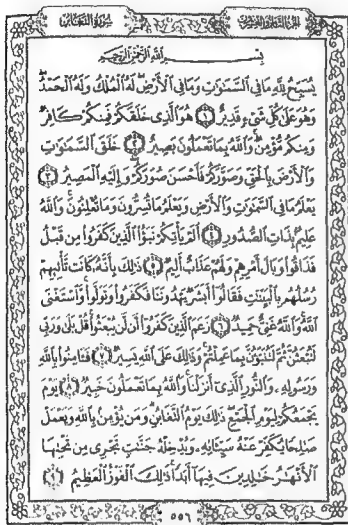 سُورَةُ التَّغَابُنِ
الجزء الثامن والعشرون
بِسْمِ اللَّهِ الرَّحْمَٰنِ الرَّحِيمِ
يُسَبِّحُ لِلَّهِ مَا فِي السَّمَٰوَٰتِ وَمَا فِي الْأَرْضِ لَهُ الْمُلْكُ وَلَهُ الْحَمْدُ
وَهُوَ عَلَىٰ كُلِّ شَيْءٍ قَدِيرٌ ﴿١﴾ هُوَ الَّذِي خَلَقَكُمْ فَمِنكُمْ كَافِرٌ
وَمِنكُم مُّؤْمِنٌ وَاللَّهُ بِمَا تَعْمَلُونَ بَصِيرٌ ﴿٢﴾ خَلَقَ السَّمَٰوَٰتِ
وَالْأَرْضَ بِالْحَقِّ وَصَوَّرَكُمْ فَأَحْسَنَ صُوَرَكُمْ وَإِلَيْهِ الْمَصِيرُ ﴿٣﴾
يَعْلَمُ مَا فِي السَّمَٰوَٰتِ وَالْأَرْضِ وَيَعْلَمُ مَا تُسِرُّونَ وَمَا تُعْلِنُونَ وَاللَّهُ
عَلِيمٌ بِذَاتِ الصُّدُورِ ﴿٤﴾ أَلَمْ يَأْتِكُمْ نَبَؤُا الَّذِينَ كَفَرُوا مِن قَبْلُ
فَذَاقُوا وَبَالَ أَمْرِهِمْ وَلَهُمْ عَذَابٌ أَلِيمٌ ﴿٥﴾ ذَٰلِكَ بِأَنَّهُ كَانَت تَّأْتِيهِمْ
رُسُلُهُم بِالْبَيِّنَٰتِ فَقَالُوا أَبَشَرٌ يَهْدُونَنَا فَكَفَرُوا وَتَوَلَّوا وَّاسْتَغْنَى
اللَّهُ وَاللَّهُ غَنِيٌّ حَمِيدٌ ﴿٦﴾ زَعَمَ الَّذِينَ كَفَرُوا أَن لَّن يُبْعَثُوا قُلْ بَلَىٰ وَرَبِّي
لَتُبْعَثُنَّ ثُمَّ لَتُنَبَّؤُنَّ بِمَا عَمِلْتُمْ وَذَٰلِكَ عَلَى اللَّهِ يَسِيرٌ ﴿٧﴾ فَـَٔامِنُوا بِاللَّهِ
وَرَسُولِهِ وَالنُّورِ الَّذِي أَنزَلْنَا وَاللَّهُ بِمَا تَعْمَلُونَ خَبِيرٌ ﴿٨﴾ يَوْمَ
يَجْمَعُكُمْ لِيَوْمِ الْجَمْعِ ذَٰلِكَ يَوْمُ التَّغَابُنِ وَمَن يُؤْمِن بِاللَّهِ وَيَعْمَلْ
صَٰلِحًا يُكَفِّرْ عَنْهُ سَيِّـَٔاتِهِ وَيُدْخِلْهُ جَنَّٰتٍ تَجْرِي مِن تَحْتِهَا
الْأَنْهَٰرُ خَٰلِدِينَ فِيهَا أَبَدًا ذَٰلِكَ الْفَوْزُ الْعَظِيمُ ﴿٩﴾
٥٥٦